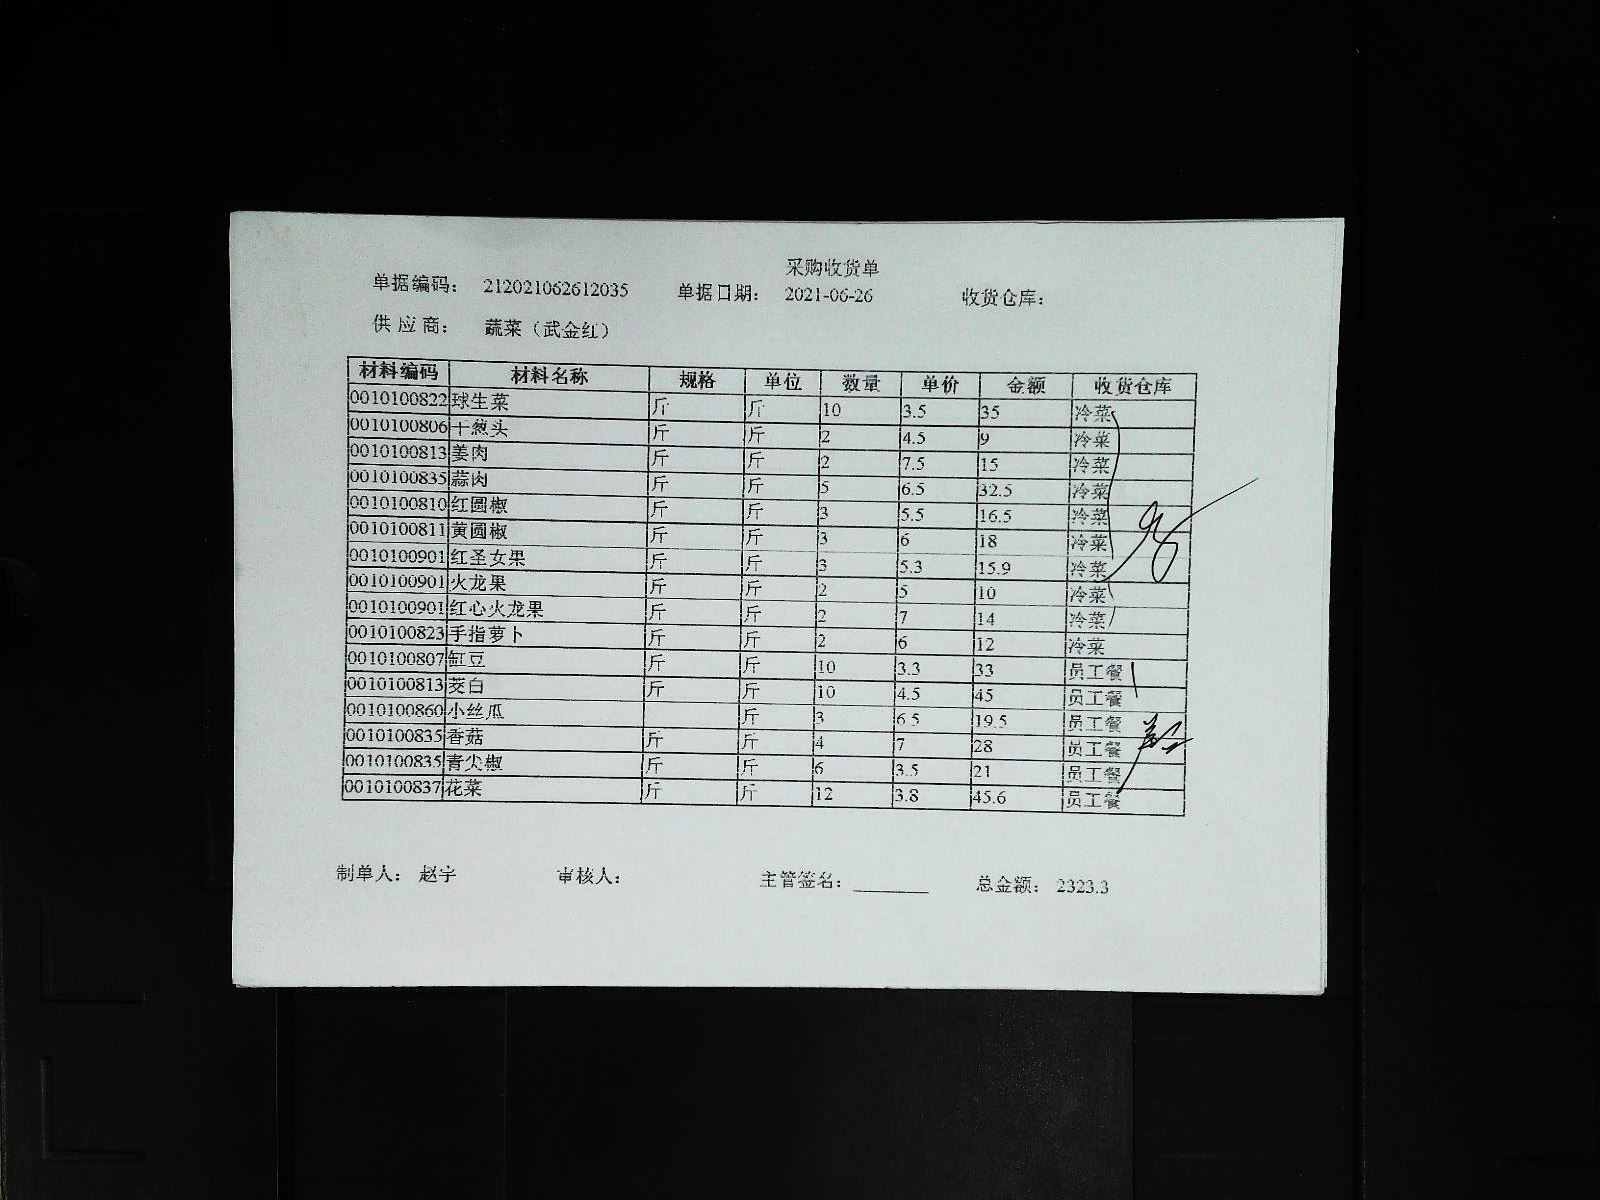 采购收货单
单据编码： 212021062612035 单据日期： 2021-06-26 收货仓库：
供 应 商： 蔬菜（武金红）
材料编码 材料名称 规格 单位 数量 单价 金额 收货仓库
0010100822 球生菜 斤 斤 10 3.5 35 冷菜
0010100806 干葱头 斤 斤 2 4.5 9 冷菜
0010100813 姜肉 斤 斤 2 7.5 15 冷菜
0010100835 蒜肉 斤 斤 5 6.5 32.5 冷菜
0010100810 红圆椒 斤 斤 3 5.5 16.5 冷菜
0010100811 黄圆椒 斤 斤 3 6 18 冷菜
0010100901 红圣女果 斤 斤 3 5.3 15.9 冷菜
0010100901 火龙果 斤 斤 2 5 10 冷菜
0010100901 红心火龙果 斤 斤 2 7 14 冷菜
0010100823 手指萝卜 斤 斤 2 6 12 冷菜
0010100807 缸豆 斤 斤 10 3.3 33 员工餐
0010100813 茭白 斤 斤 10 4.5 45 员工餐
0010100860 小丝瓜 斤 3 6.5 19.5 员工餐
0010100835 香菇 斤 斤 4 7 28 员工餐
0010100835 青尖椒 斤 斤 6 3.5 21 员工餐
0010100837 花菜 斤 斤 12 3.8 45.6 员工餐
制单人： 赵宇 审核人： 主管签名： 总金额： 2323.3